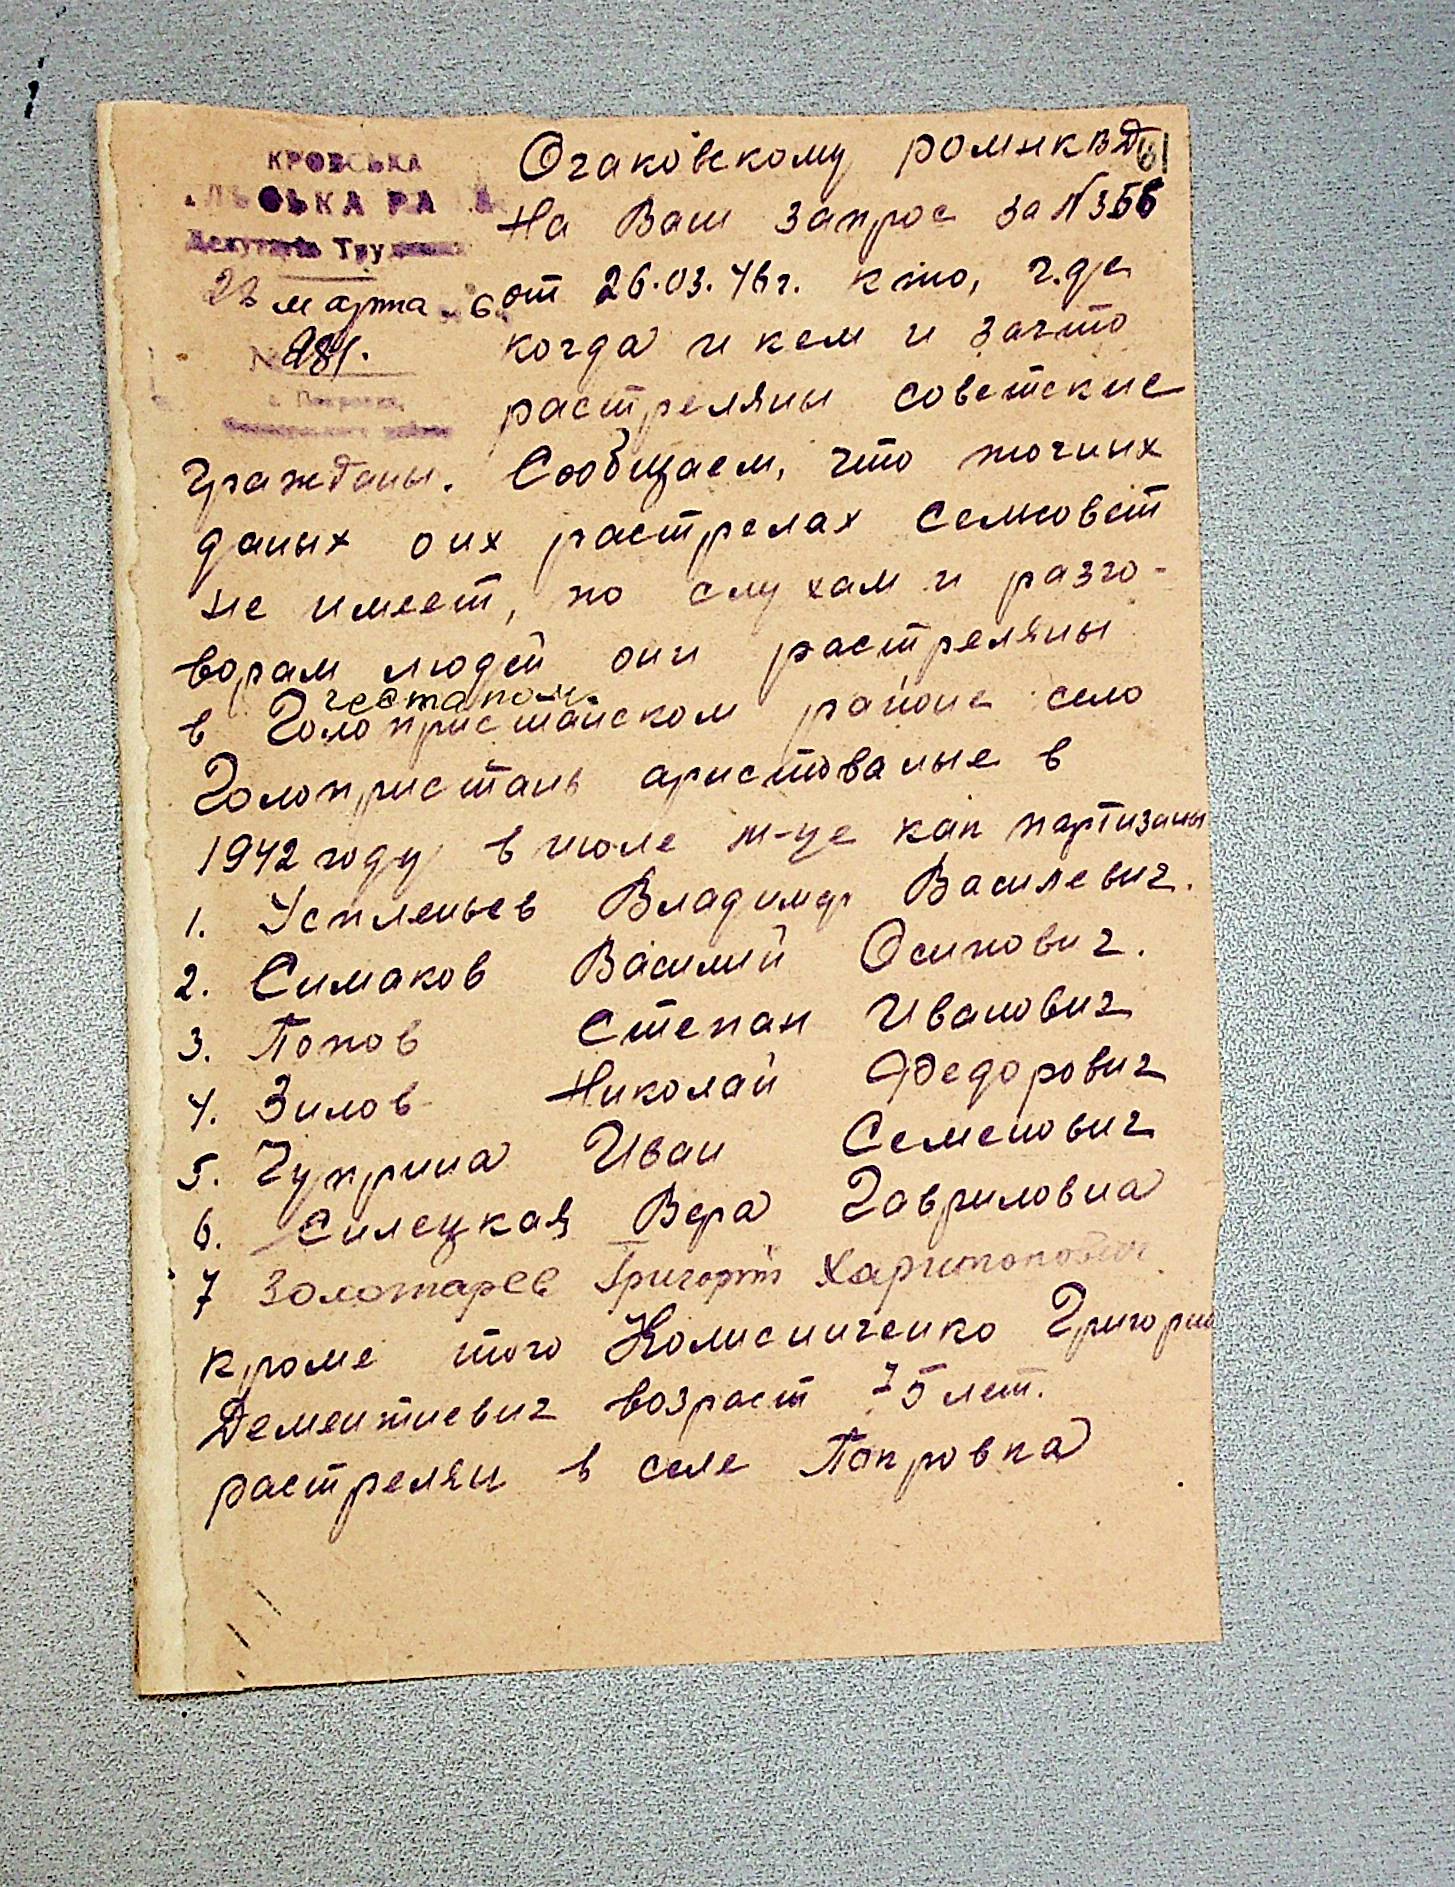 КРОВСЬКА
ЛЬСЬКА РАДА
Депутатів Трудящих
марта 6
№ 281.
с. Покровка,
Очаковскому ромнквд
61
На Ваш запрос за N 356
от 26.03.46г. кто, где
когда и кем и зачто
растреляны советские
граждани. Сообщаем, что точних
даных оих растрелах сельсовет
не имеет, по слухам и разго-
ворам людей они растреляны
гестапом.
в Голопристанском районе село
Голопристань аристованые в
1942 году в июле м-це как партизаны
1. Успленьев Владимир Василевич.
2. Симаков Василий Осипович.
3. Попов Степан Иванович
4. Зилов Николай Федорович
5. Чуприна Иван Семенович
6. Силецкая Вера Гавриловна
7 Золотарев Григорий Харитонович
кроме того Колисниченко Григорий
Дементиевич возраст 75 лет.
растрелян в селе Покровка